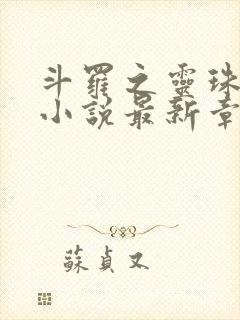 斗羅之靈珠
小説最新章
蘇貞又